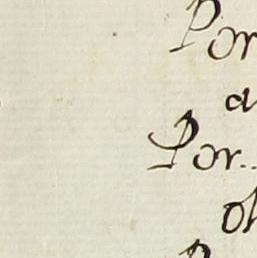 Por
a
Por..
ol
P